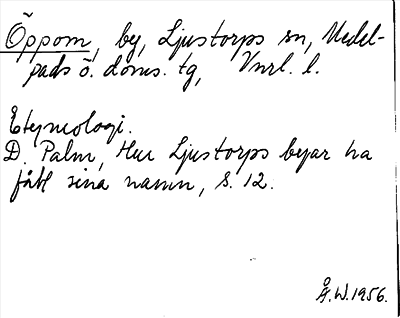 Öppom, by, Ljustorps sn, Medel-
pads ö. doms. tg, Vnrl. l.
Etymologi.
D. Palm, Hur Ljustorps byar ha
fått sina namn, s. 12.
Å.W.1956.